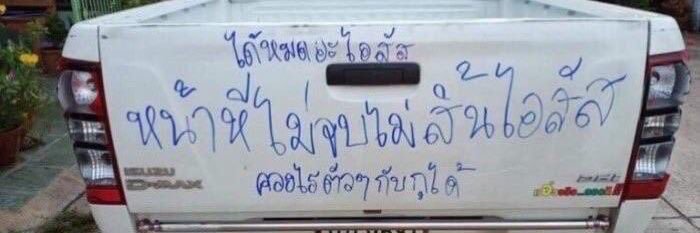 ได้หมดอะไอสัส
หน้าหีไม่จบไม่สิ้นไอสัส
ควยไรตัวๆกับกูได้
ISUZU
D-MAX